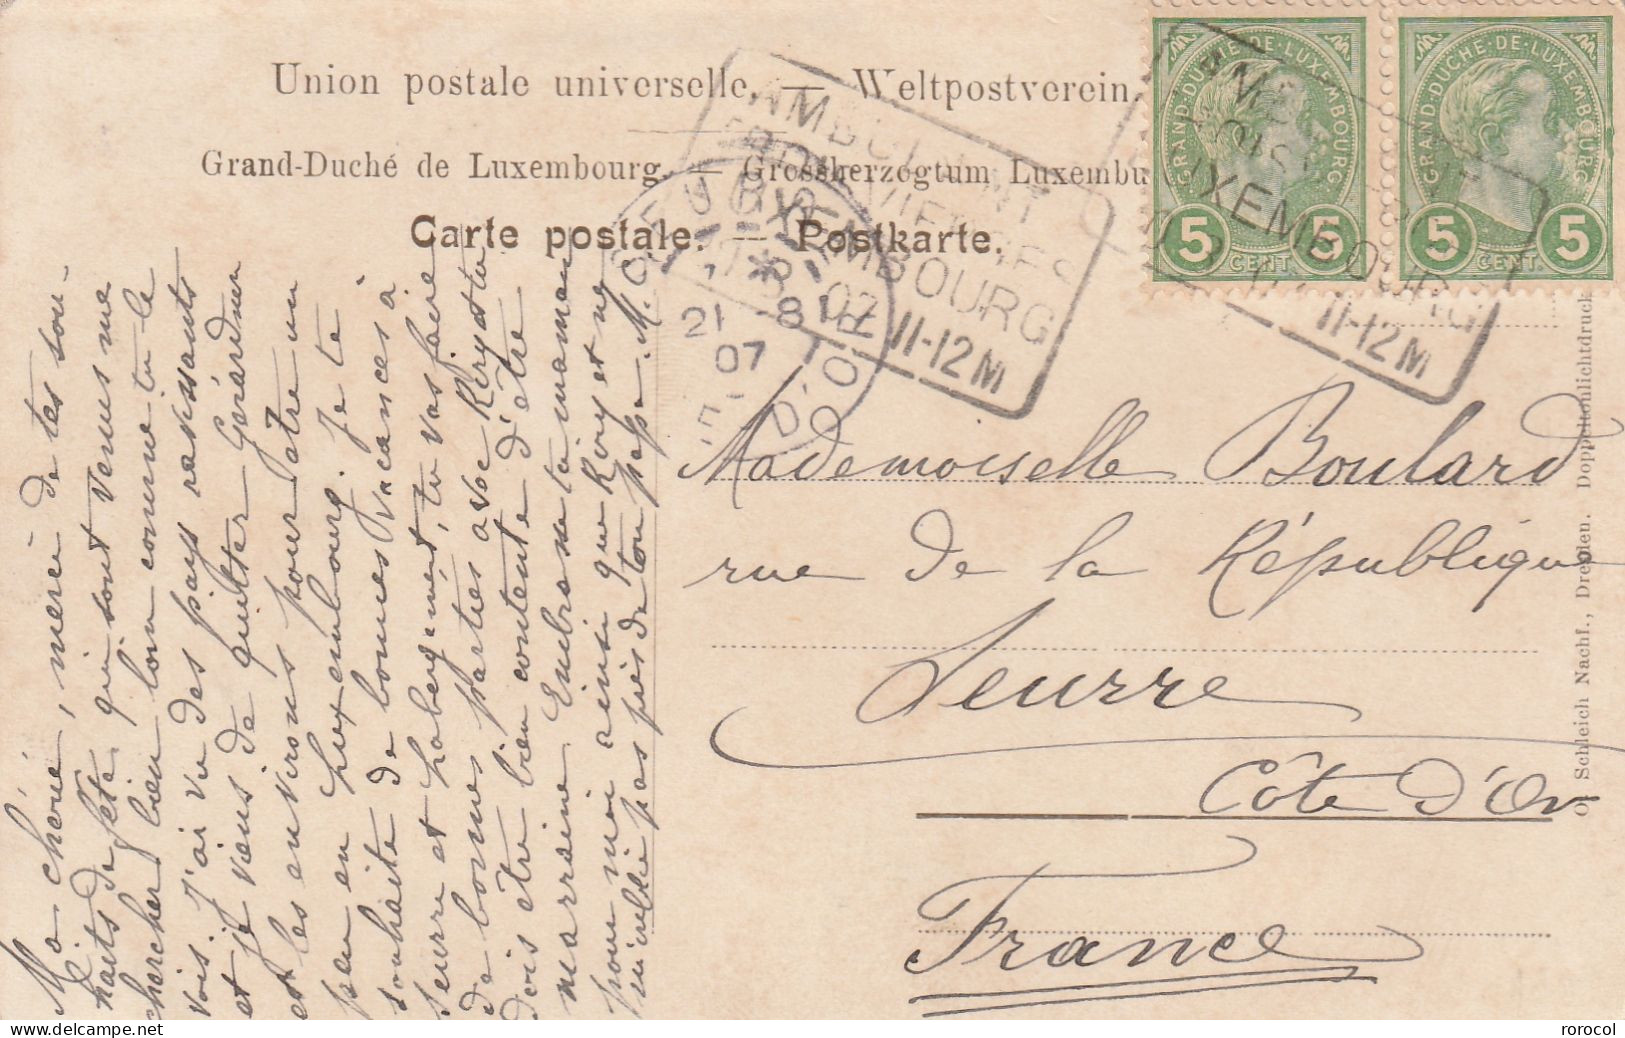 Union postale universelle. — Weltpostverein.
Grand-Duché de Luxembourg. — Grossherzogtum Luxembu
Carte postale. — Postkarte.
GRAND-DUCHÉ-DE-LUXEMBOURG
5 CENT. 5
GRAND-DUCHÉ-DE-LUXEMBOURG
5 CENT. 5
AMBULANT
LUXEMBOURG
07 11-12M
LUXEMBOURG
11-12M
SEURRE
21 -8
07
CÔTE D'OR
Ma chérie, merci de tes sou-
haits de fête, qui sont venus me
chercher bien loin comme tu le
vois. J'ai vu des pays ravissants
et je viens de quitter Gérardmer
et les environs pour être un
peu en Luxembourg. Je te
souhaite de bonnes vacances à
Seurre et, tu vas faire
de bonnes parties avec Kiry et tu
dois être bien contente d'être
marraine. Embrasse ta maman
pour moi ainsi que Kiry et ne
m'oublie pas près de ton papa. M.
Mademoiselle Boulard
rue de la République
Seurre
Côte d'Or
France
O. Schleich Nachf., Dresden. Doppeltonlichtdruck
rorocol
delcampe.net